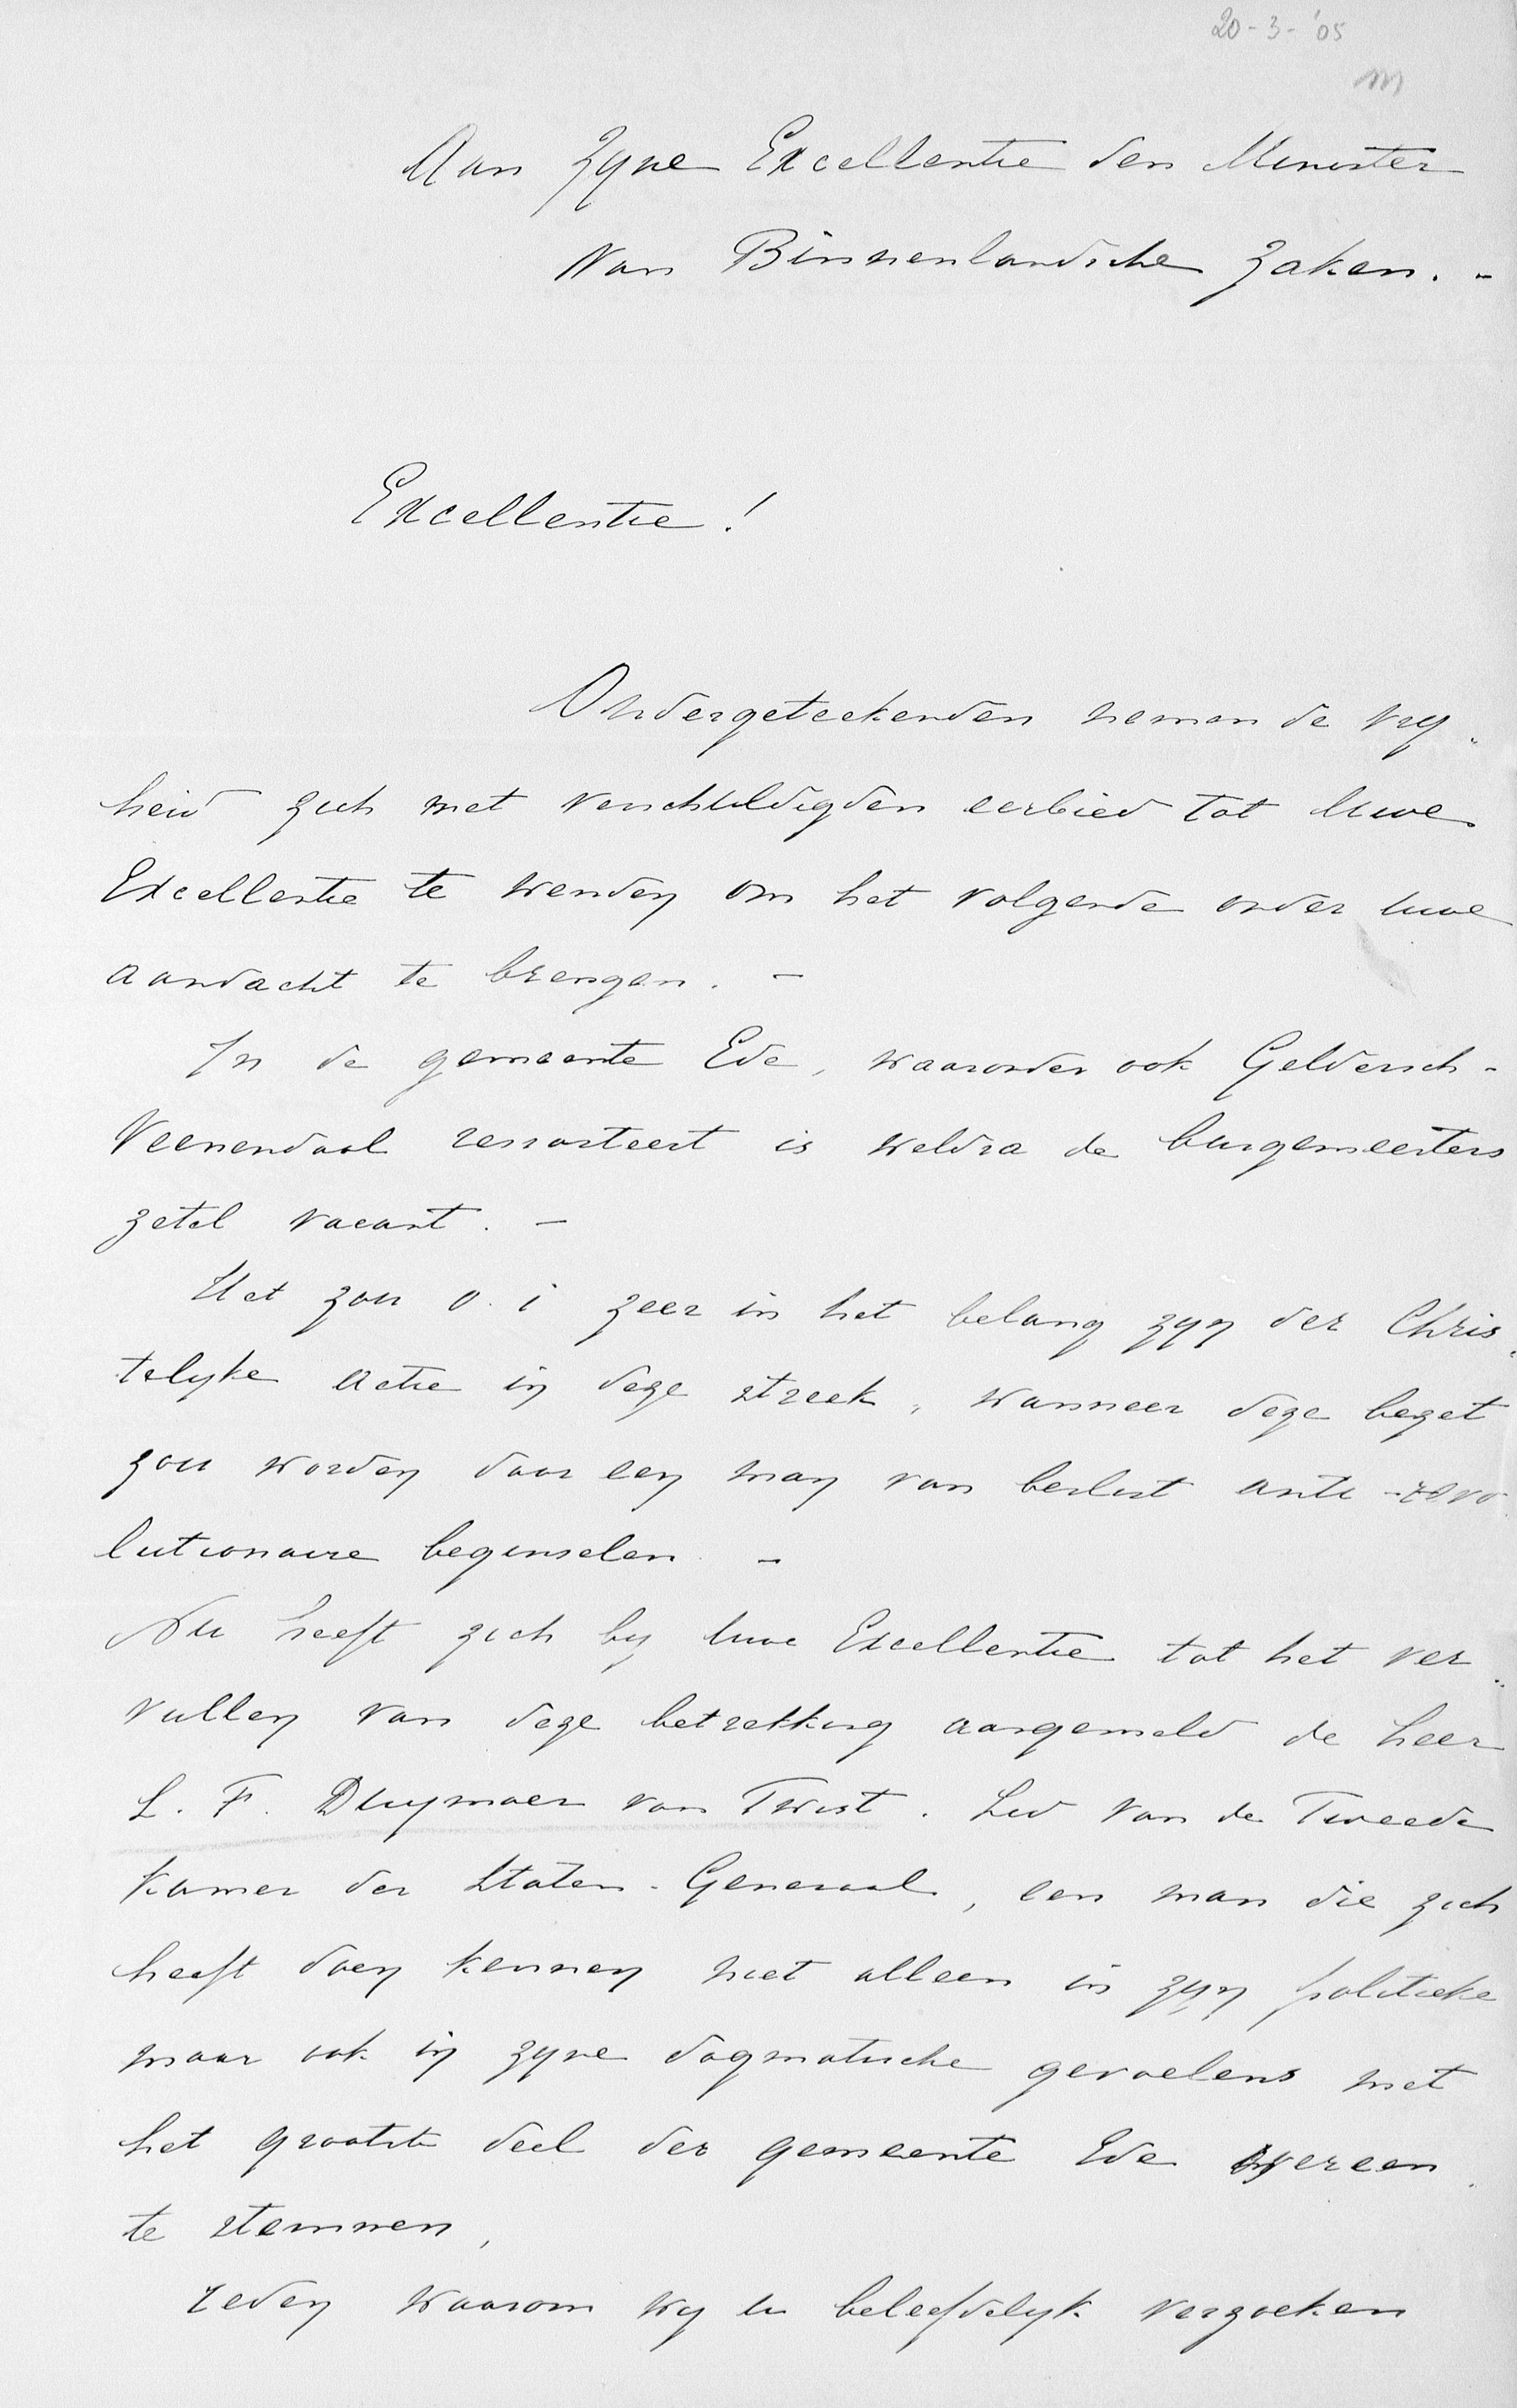 20-3-'05
m
Aan Zyne Excellentie den Minister
van Binnenlandsche Zaken. -
Excellentie!
Ondergeteekenden nemen de vry-
heid zich met verschuldigden eerbied tot Uwe
Excellentie te wenden om het volgende onder uwe
aandacht te brengen. -
In de gemeente Ede, waaronder ook Geldersch-
Veenendaal ressorteert is weldra de burgemeesters
zetel vacant. -
Het zou o. i zeer in het belang zyn der Chris-
telyke actie in deze streek, wanneer deze bezet
zou worden door een man van beslist anti-revo
lutionaire beginselen. -
Nu heeft zich by Uwe Excellentie tot het ver-
vullen van deze betrekking aangemeld de heer
L. F. Duymaer van Twist. Lid van de Tweede
Kamer der Staten-Generaal, een man die zich
heeft doen kennen niet alleen in zyn politieke
maar ook in zyne dogmatische gevoelens met
het grootste deel der gemeente Ede overeen
te stemmen,
reden waarom wy u beleefdelyk verzoeken